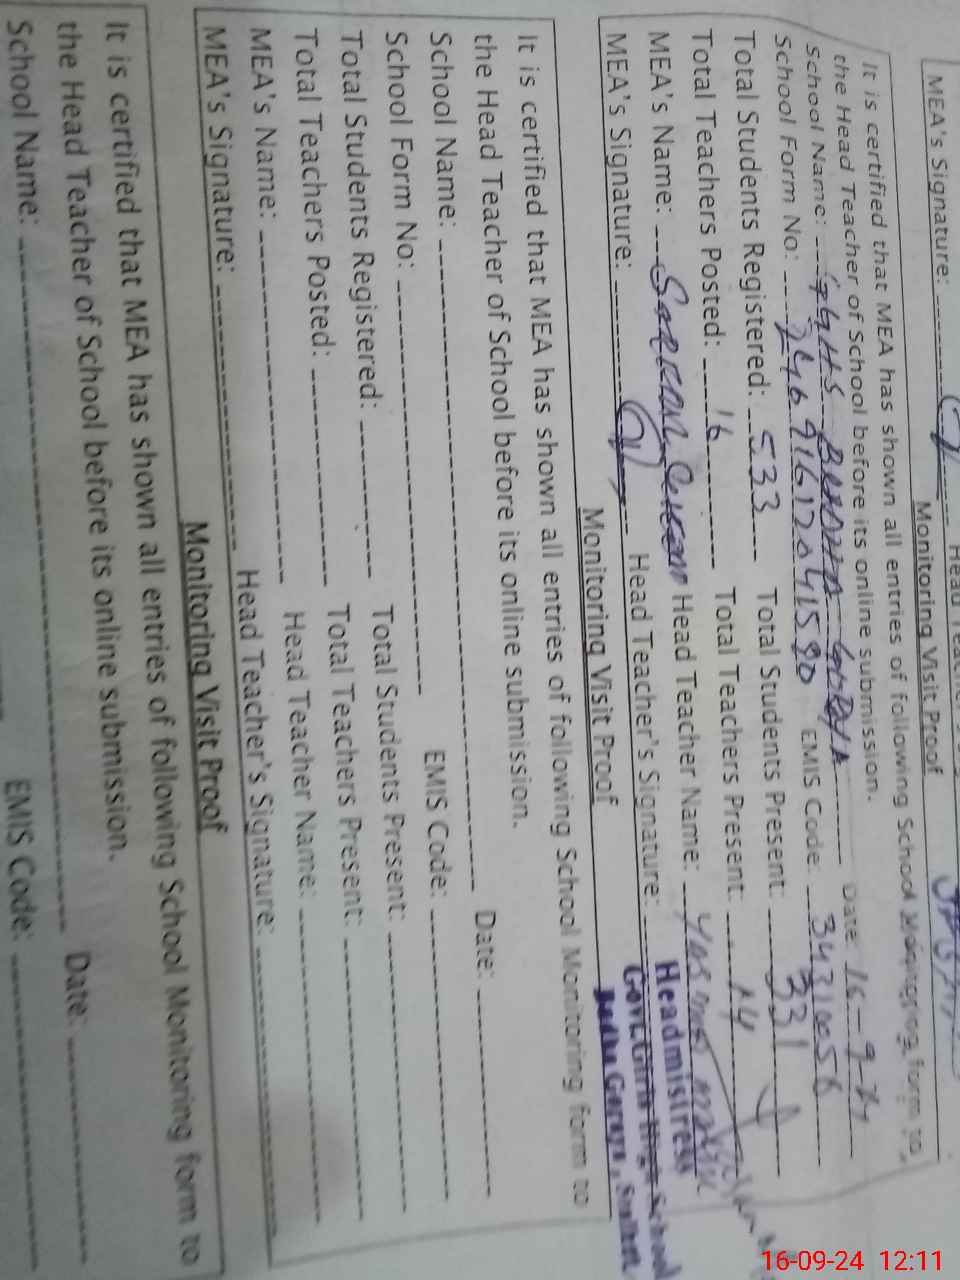 MEA's Signature: Head Teacher's
Monitoring Visit Proof
It is certified that MEA has shown all entries of following School Monitoring form to
the Head Teacher of School before its online submission. Date 16-9-24
School Name: GGHS
School Form No: EMIS Code:
Total Students Registered: 533 Total Students Present: 331
Total Teachers Posted: 16 Total Teachers Present: 14
MEA's Name: Head Teacher Name:
MEA's Signature: Head Teacher's Signature:
Headmistress
Govt. Girls High School
Monitoring Visit Proof
It is certified that MEA has shown all entries of following School Monitoring form to
the Head Teacher of School before its online submission.
School Name: Date:
School Form No: EMIS Code:
Total Students Registered: Total Students Present:
Total Teachers Posted: Total Teachers Present:
MEA's Name: Head Teacher Name:
MEA's Signature: Head Teacher's Signature:
Monitoring Visit Proof
It is certified that MEA has shown all entries of following School Monitoring form to
the Head Teacher of School before its online submission.
School Name: Date:
EMIS Code:
16-09-24 12:11